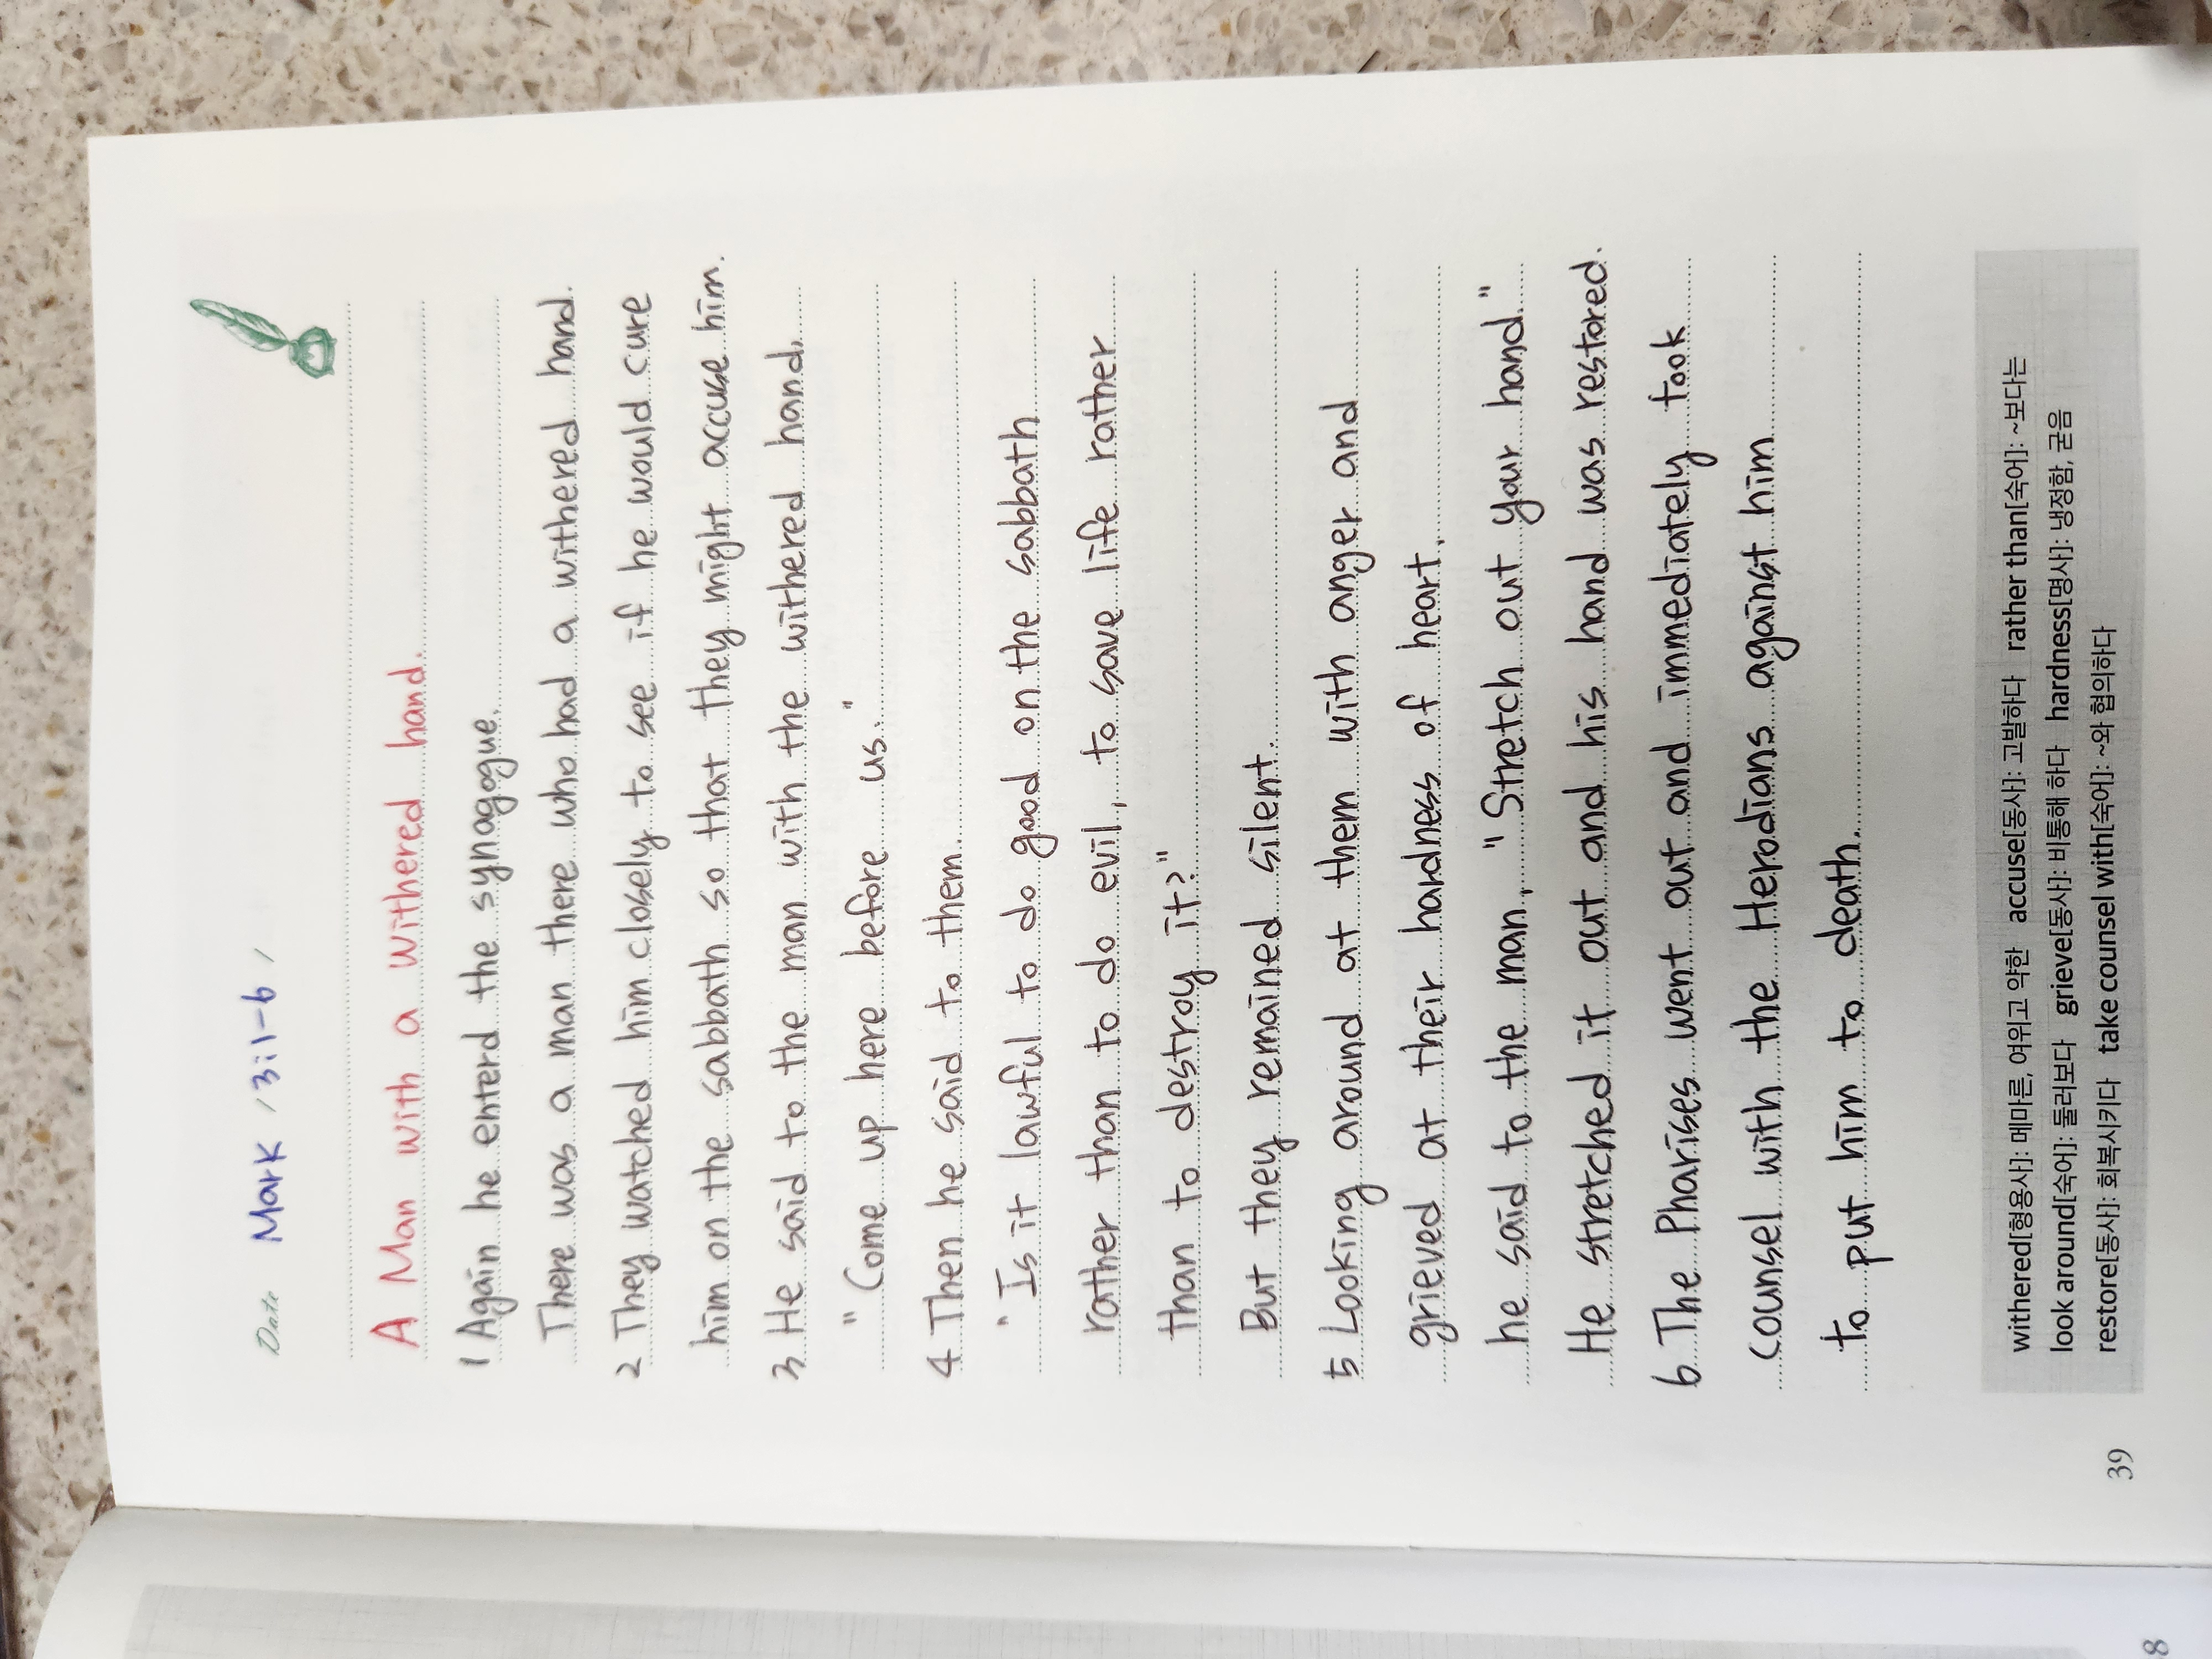 Date Mark / 3:1-6 /
A Man with a withered hand.
1 Again he enterd the synagogue.
There was a man there who had a withered hand.
2 They watched him closely to see if he would cure
him on the sabbath so that they might accuse him.
3 He said to the man with the withered hand,
"Come up here before us."
4 Then he said to them.
"Is it lawful to do good on the sabbath
rather than to do evil, to save life rather
than to destroy it?"
But they remained silent.
5 Looking around at them with anger and
grieved at their hardness of heart,
he said to the man, "Stretch out your hand."
He stretched it out and his hand was restored.
6 The Pharises went out and immediately took
counsel with the Herodians against him
to put him to death.
withered[형용사]: 메마른, 여위고 약한 accuse[동사]: 고발하다 rather than[숙어]: ~보다는
look around[숙어]: 둘러보다 grieve[동사]: 비통해 하다 hardness[명사]: 냉정함, 굳음
restore[동사]: 회복시키다 take counsel with[숙어]: ~와 협의하다
39
8